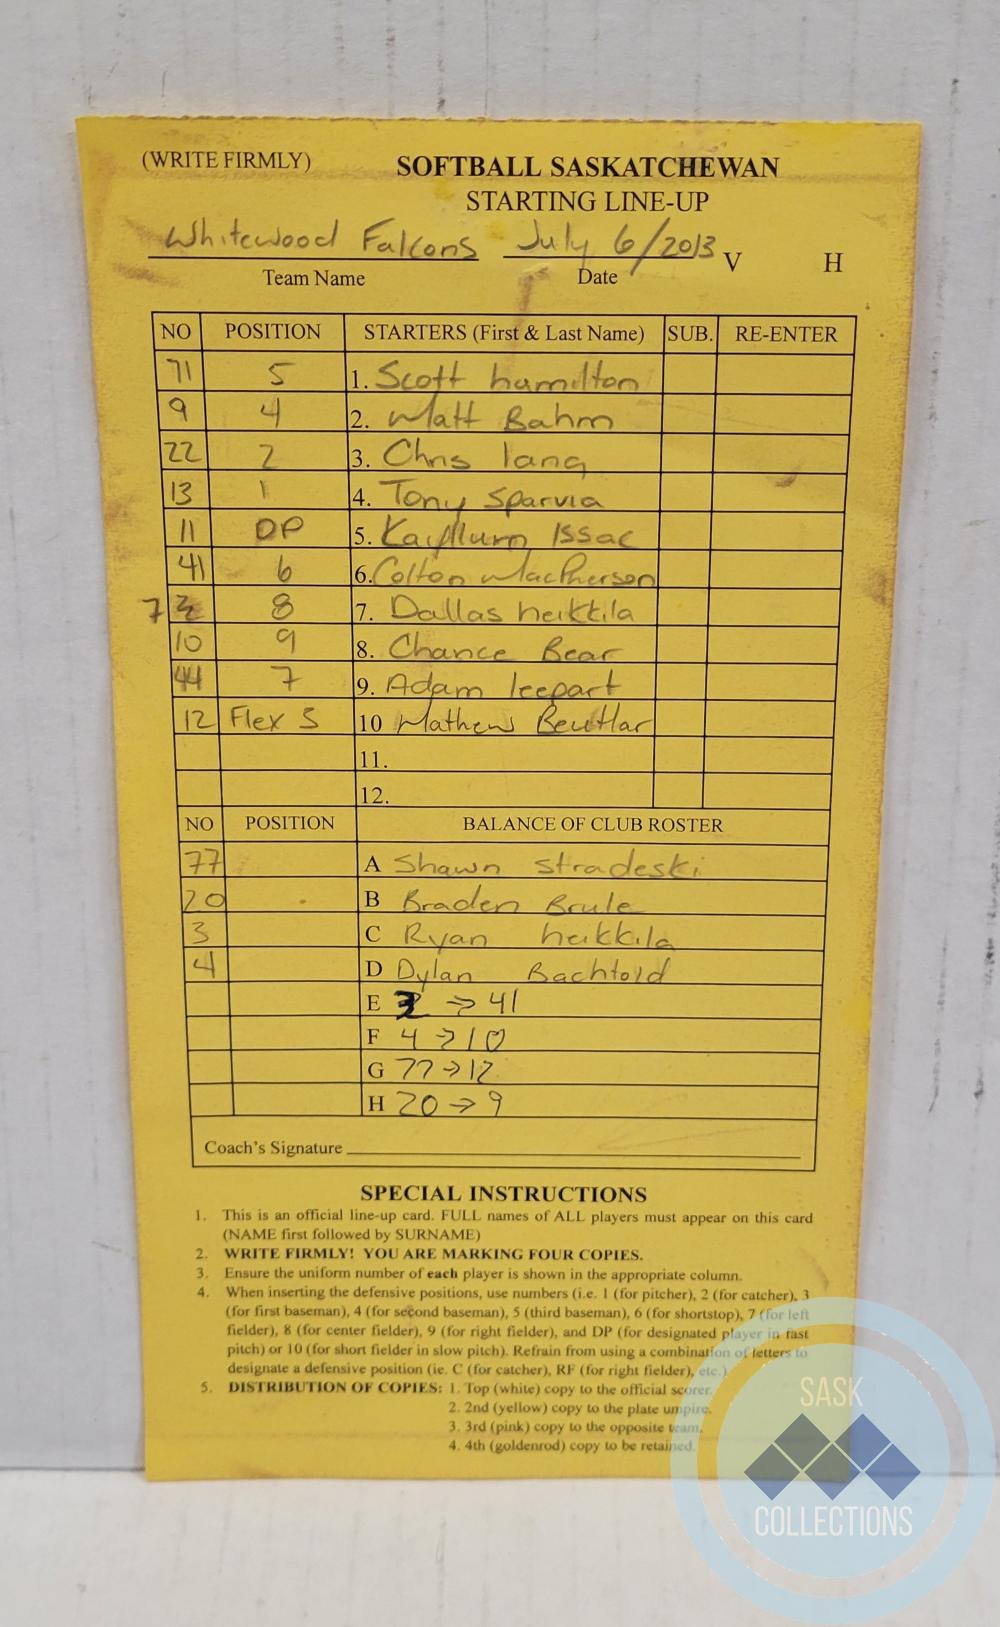 (WRITE FIRMLY) SOFTBALL SASKATCHEWAN
STARTING LINE-UP
Whitewood Falcons July 6/2013 V H
Team Name Date
NO POSITION STARTERS (First & Last Name) SUB. RE-ENTER
71 5 1. Scott hamilton
9 4 2. Matt Bahm
22 2 3. Chris lang
13 1 4. Tony Sparvia
11 DP 5. Issac
41 6 6. Colton MacPherson
7 8 7. Dallas heikkila
10 9 8. Chance Bear
44 7 9. Adam leepart
12 Flex 3 10 Mathew Beutlar
11.
12.
NO POSITION BALANCE OF CLUB ROSTER
77 A Shawn Stradeski
20 B Braden Brule
3 C Ryan heikkila
4 D Dylan Bachtold
E 3 → 41
F 4 → 10
G 77 → 12
H 20 → 9
Coach's Signature
SPECIAL INSTRUCTIONS
1. This is an official line-up card. FULL names of ALL players must appear on this card
(NAME first followed by SURNAME)
2. WRITE FIRMLY! YOU ARE MARKING FOUR COPIES.
3. Ensure the uniform number of each player is shown in the appropriate column.
4. When inserting the defensive positions, use numbers (i.e. 1 (for pitcher), 2 (for catcher), 3
(for first baseman), 4 (for second baseman), 5 (third baseman), 6 (for shortstop), 7 (for left
fielder), 8 (for center fielder), 9 (for right fielder), and DP (for designated player in fast
pitch) or 10 (for short fielder in slow pitch). Refrain from using a combination of letters to
designate a defensive position (ie. C (for catcher), RF (for right fielder), etc.)
5. DISTRIBUTION OF COPIES: 1. Top (white) copy to the official scorer.
2. 2nd (yellow) copy to the plate umpire.
3. 3rd (pink) copy to the opposite team.
4. 4th (goldenrod) copy to be retained.
SASK
COLLECTIONS